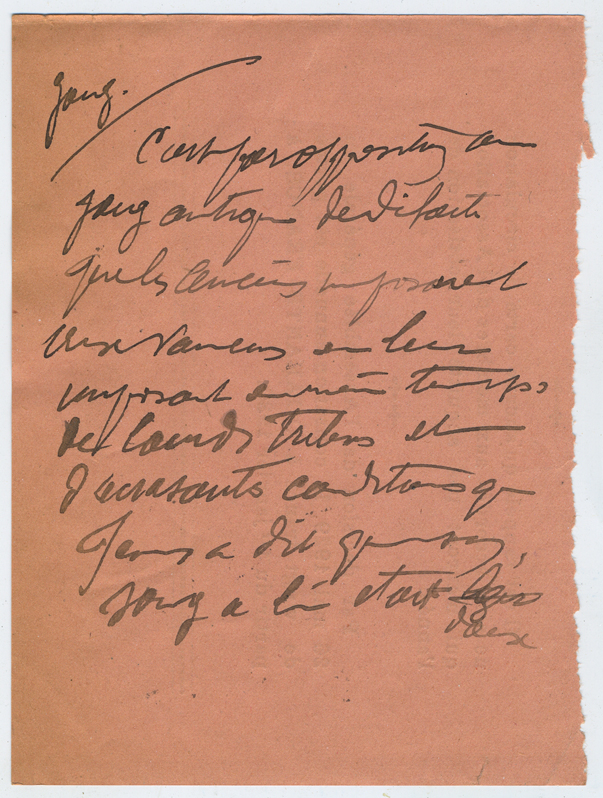 joug.
C'est par opposition au
joug antique de défaite
que les anciens imposaient
aux vaincus en leur
imposant en même temps
de lourds tributs et
d'écrasantes conditions que
Jésus a dit que son
joug a lui était léger
doux